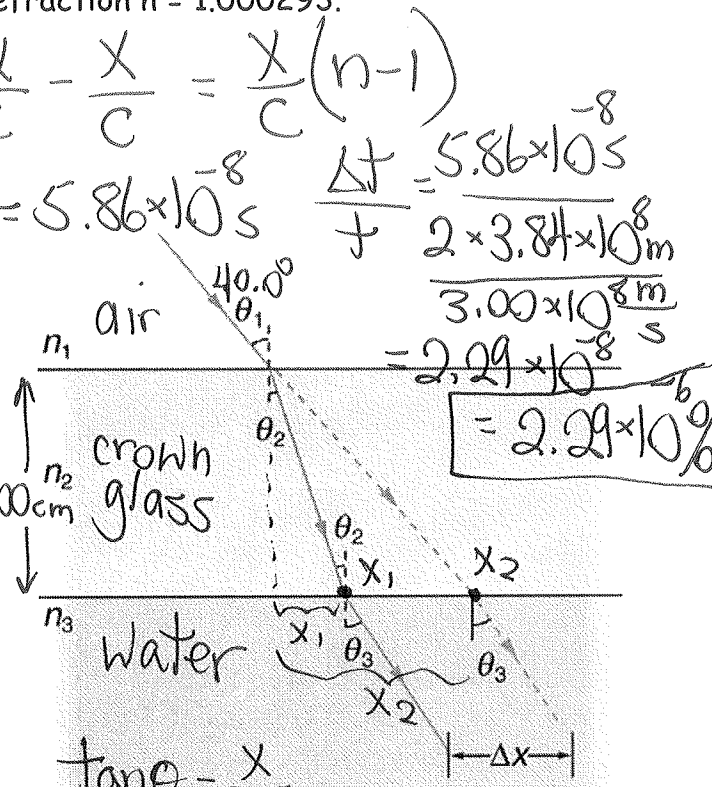 refraction n = 1.000293.
X/C - X/C = X/C (n-1)
= 5.86×10⁻⁸ s
Δt/t = 5.86×10⁻⁸ s / (2×3.84×10⁸ m / 3.00×10⁸ m/s)
= 2.29×10⁻⁸
= 2.29×10⁻⁶ %
40.0°
θ₁
air
n₁
θ₂
crown
glass
n₂
00cm
θ₂
X₁
X₂
n₃
water
X₁
θ₃
θ₃
X₂
Δx
tanθ = X